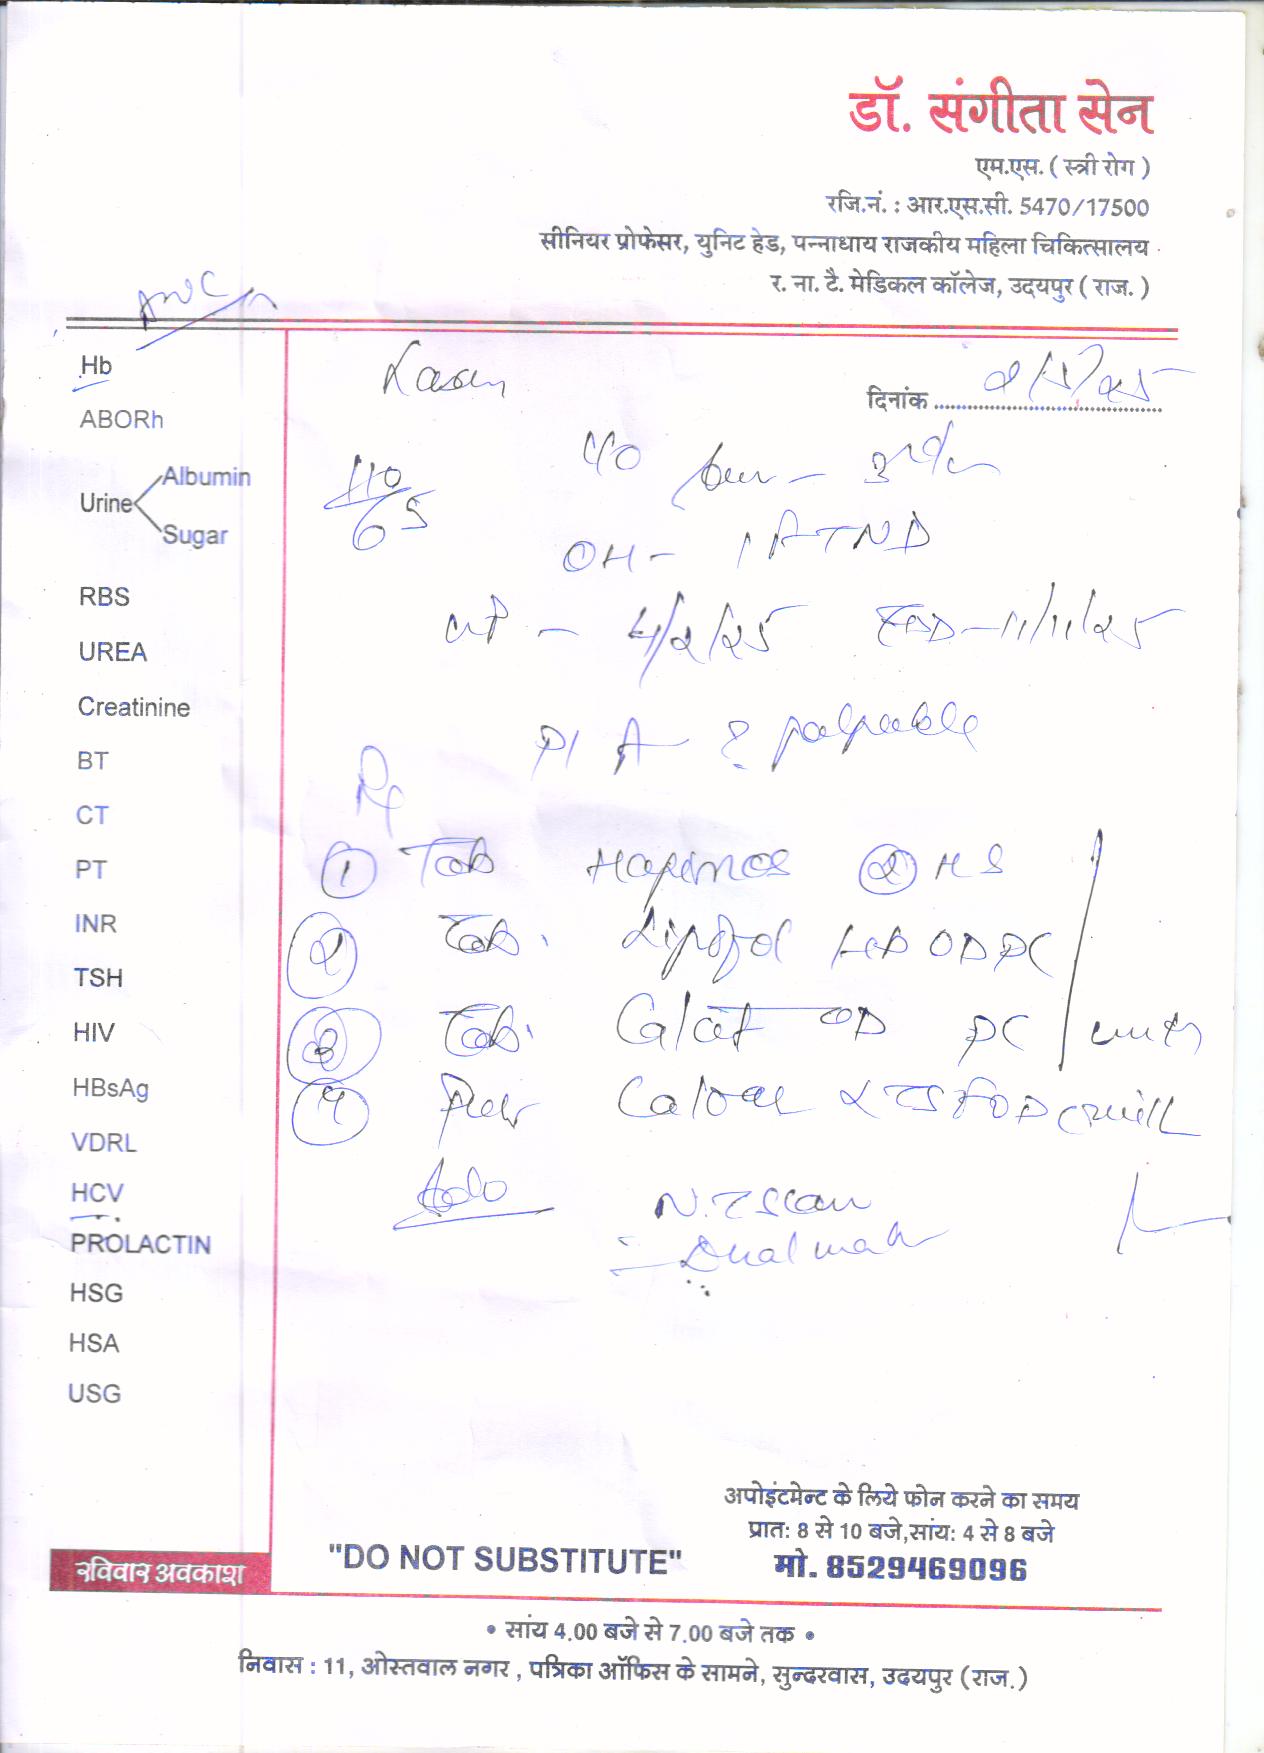 डॉ. संगीता सेन
एम.एस. ( स्त्री रोग )
रजि.नं. : आर.एस.सी. 5470/17500
सीनियर प्रोफेसर, युनिट हेड, पन्नाधाय राजकीय महिला चिकित्सालय
र. ना. टै. मेडिकल कॉलेज, उदयपुर ( राज. )
ANC
Hb
दिनांक
ABORh
110/65
Urine Albumin
Sugar
OH - 1 FTND
RBS
4/2/25 EDD - 11/11/25
UREA
Creatinine
P/A - ? palpable
BT
Rx
CT
PT
① Tab ② HS
INR
② Tab. OD PC
TSH
HIV
③ Tab. OD PC
HBsAg
④
VDRL
Adv N.T Scan
HCV
- Dual
PROLACTIN
HSG
HSA
USG
अपोइंटमेन्ट के लिये फोन करने का समय
प्रात: 8 से 10 बजे,सांय: 4 से 8 बजे
रविवार अवकाश
"DO NOT SUBSTITUTE"
मो. 8529469096
• सांय 4.00 बजे से 7.00 बजे तक •
निवास : 11, ओस्तवाल नगर , पत्रिका ऑफिस के सामने, सुन्दरवास, उदयपुर (राज.)